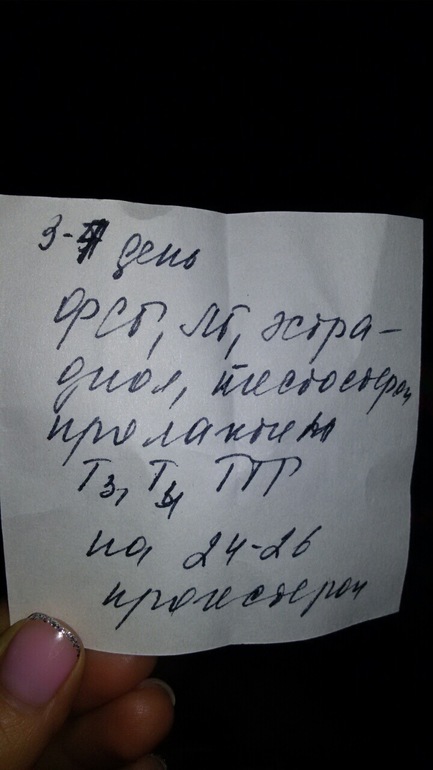 3-7 день
ФСГ, ЛГ, эстра-
диол, тестостерон
пролактин
Т3, Т4 ТТГ
на 24-26
прогестерон